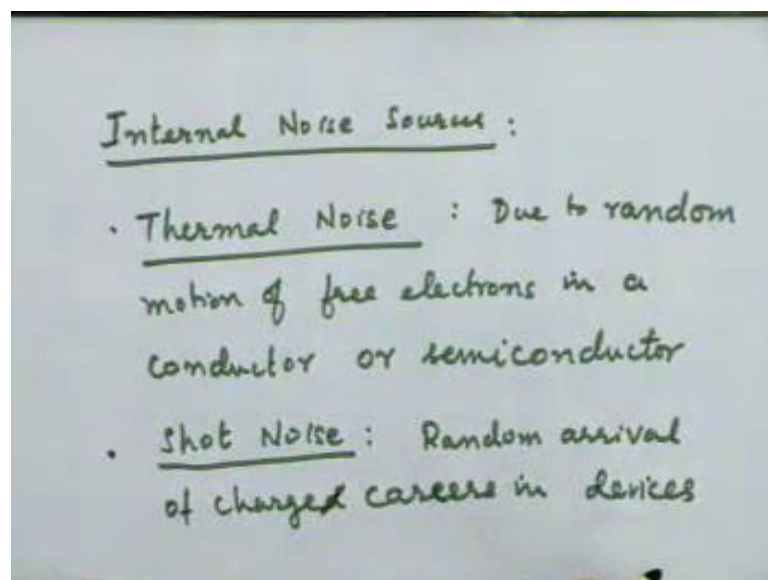 Internal Noise Sources :
· Thermal Noise : Due to random
motion of free electrons in a
conductor or semiconductor
· Shot Noise : Random arrival
of charged careers in devices